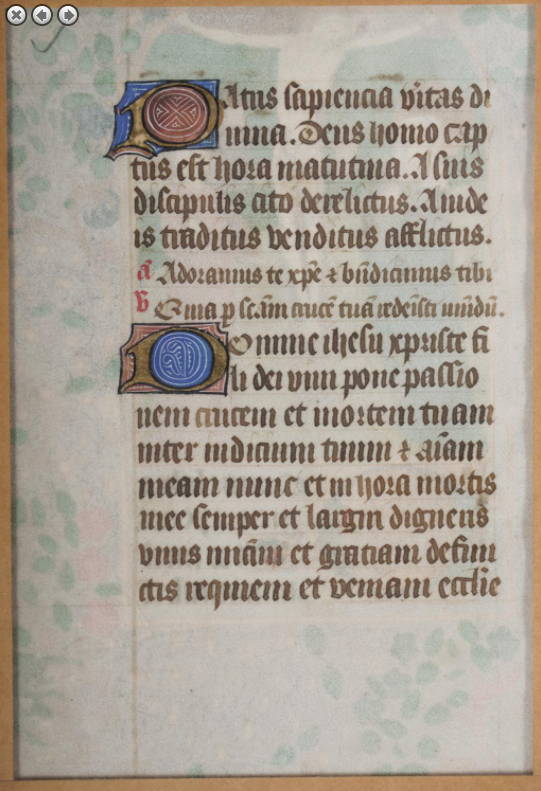 Patris sapiencia veritas di
uina. Deus homo cap
tus est hora matutina. A suis
discipulis cito derelictus. A iude
is traditus venditus afflictus.
a Adoramus te xpe et bndicimus tibi
v Quia p scam crucē tuā redemisti mūdū.
Domine ihesu xpriste fi
li dei viui pone passio
nem crucem et mortem tuam
inter iudicium tuum et aīam
meam nunc et in hora mortis
mee semper et largiri digneris
viuis mīam et gratiam defun
ctis requiem et veniam ecclīe